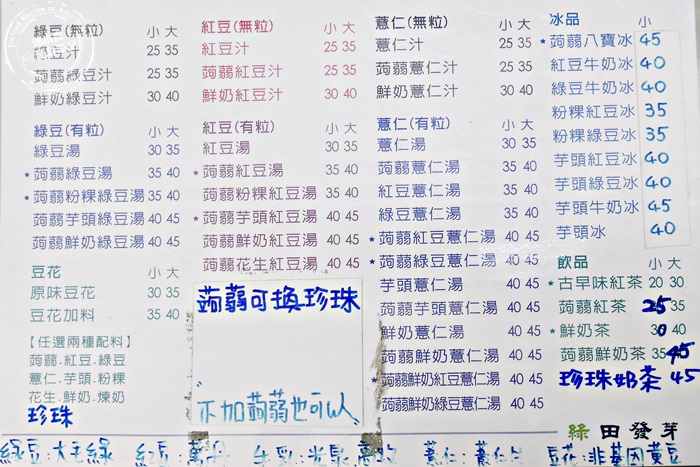 綠豆(無粒) 小 大
綠豆汁 25 35
蒟蒻綠豆汁 25 35
鮮奶綠豆汁 30 40
綠豆(有粒) 小 大
綠豆湯 30 35
*蒟蒻綠豆湯 35 40
*蒟蒻粉粿綠豆湯 35 40
蒟蒻芋頭綠豆湯 40 45
蒟蒻鮮奶綠豆湯 40 45
豆花 小 大
原味豆花 30 35
豆花加料 35 40
【任選兩種配料】
蒟蒻.紅豆.綠豆
薏仁.芋頭.粉粿
花生.鮮奶.煉奶
珍珠
紅豆(無粒) 小 大
紅豆汁 25 35
蒟蒻紅豆汁 25 35
鮮奶紅豆汁 30 40
紅豆(有粒) 小 大
紅豆湯 30 35
*蒟蒻紅豆湯 35 40
蒟蒻粉粿紅豆湯 35 40
*蒟蒻芋頭紅豆湯 40 45
蒟蒻鮮奶紅豆湯 40 45
蒟蒻花生紅豆湯 40 45
蒟蒻可換珍珠
不加蒟蒻也可以
薏仁(無粒) 小 大
薏仁汁 25 35
蒟蒻薏仁汁 25 35
鮮奶薏仁汁 30 40
薏仁(有粒) 小 大
薏仁湯 30 35
蒟蒻薏仁湯 35 40
紅豆薏仁湯 35 40
綠豆薏仁湯 35 40
*蒟蒻紅豆薏仁湯 40 45
*蒟蒻綠豆薏仁湯 40 45
芋頭薏仁湯 40 45
蒟蒻芋頭薏仁湯 40 45
鮮奶薏仁湯 40 45
蒟蒻鮮奶薏仁湯 40 45
*蒟蒻鮮奶紅豆薏仁湯 40 45
蒟蒻鮮奶綠豆薏仁湯 40 45
冰品 小
*蒟蒻八寶冰 45
紅豆牛奶冰 40
綠豆牛奶冰 40
粉粿紅豆冰 35
粉粿綠豆冰 35
芋頭紅豆冰 40
芋頭綠豆冰 40
芋頭牛奶冰 45
芋頭冰 40
飲品 小 大
*古早味紅茶 20 30
蒟蒻紅茶 25 35
*鮮奶茶 30 40
蒟蒻鮮奶茶 35 45
珍珠奶茶 45
綠田發芽
綠豆:大毛綠 紅豆:萬丹 牛乳:光泉 薏仁:薏仁 豆花:非基因黃豆